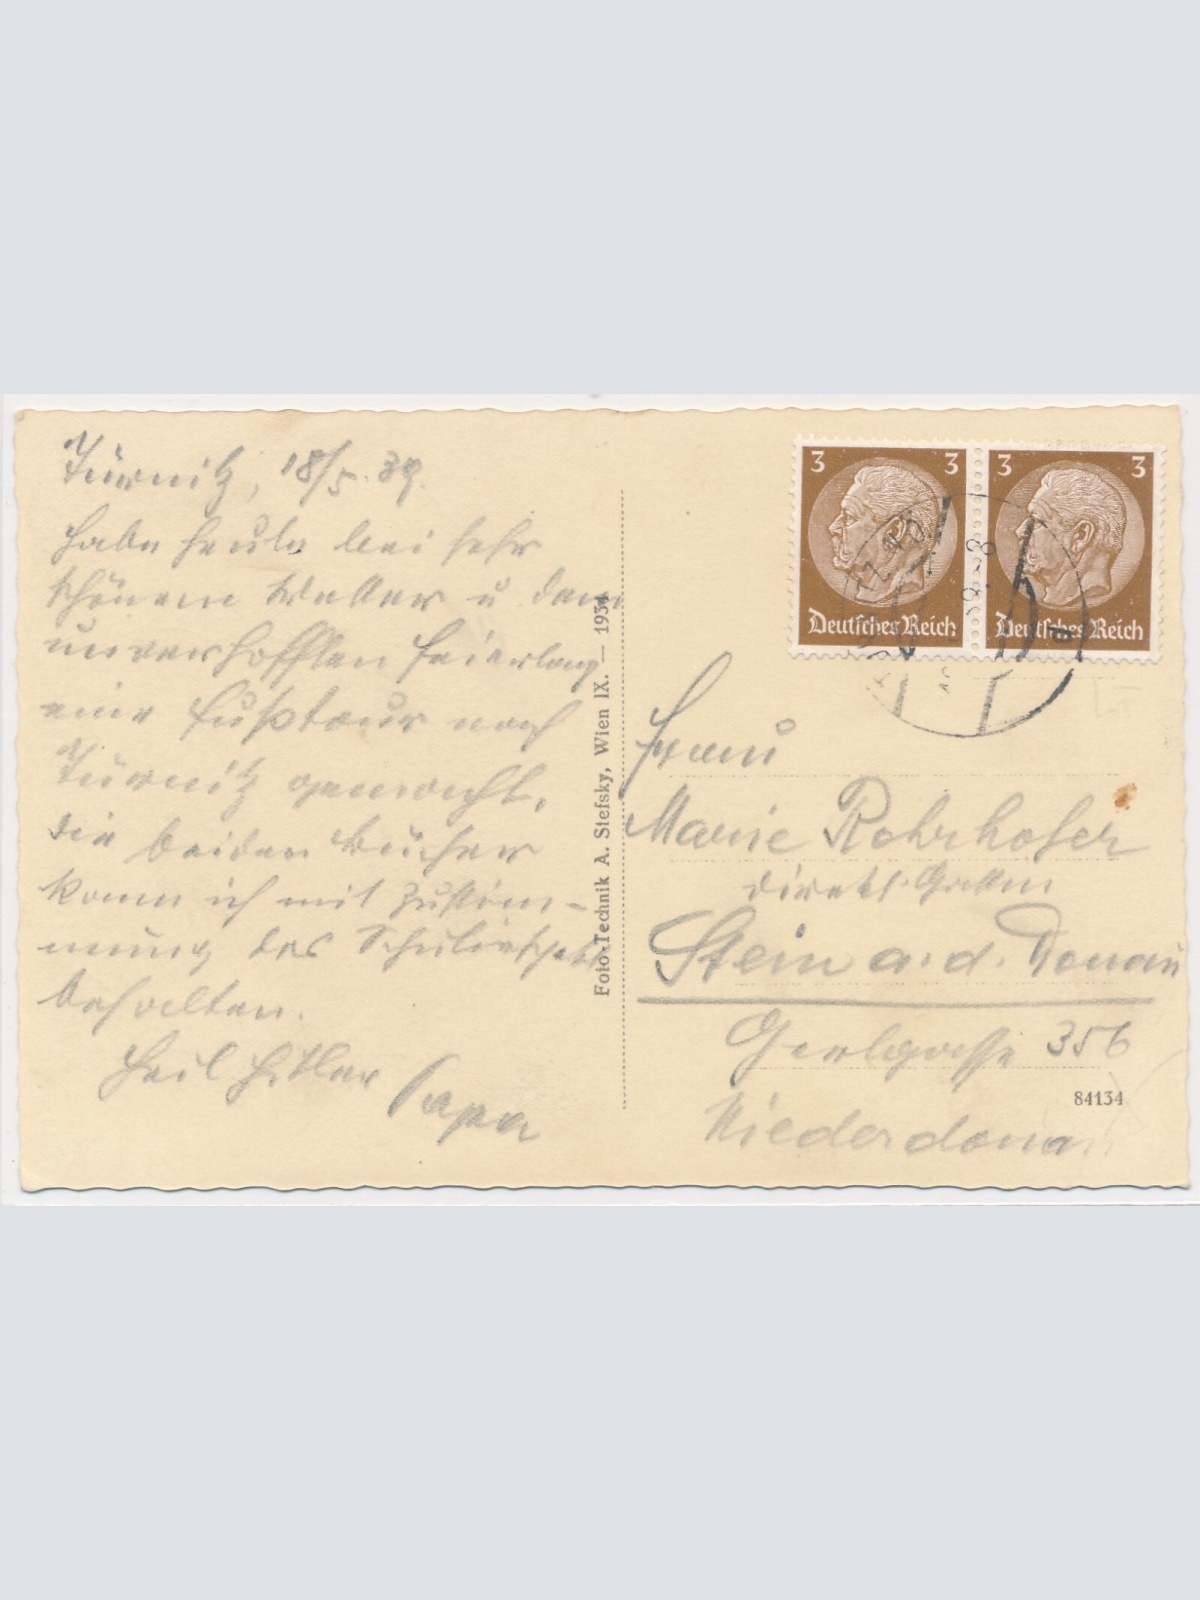 Türnitz, 18/5.39.
Habe heute bei sehr
schönem Wetter u dem
unverhofften Feiertag
eine Fußtour nach
Türnitz gemacht,
die beiden Bücher
kann ich mit Zustim-
mung des
behalten.
Heil Hitler Papa
Foto-Technik A. Stefsky, Wien IX. — 1934
3 3
Deutsches Reich
3 3
Deutsches Reich
Frau
Marie Rohrhofer
Stein a. d. Donau
356
84134
Niederdonau